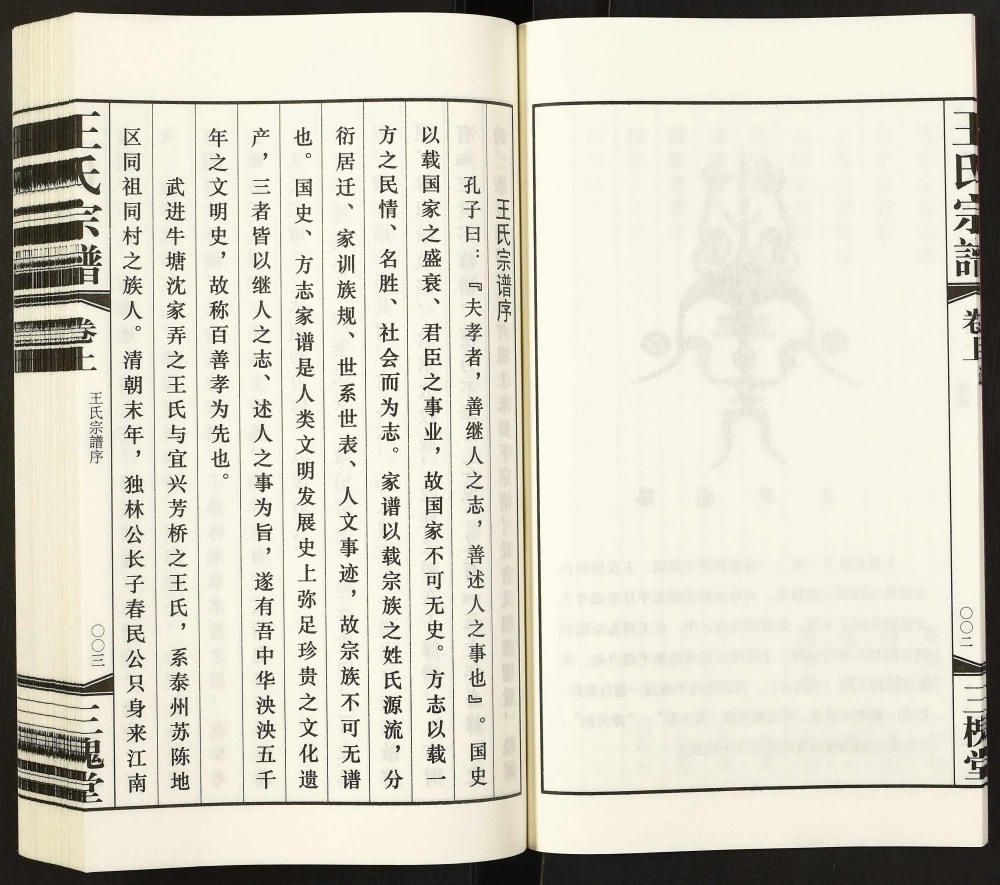 王氏宗譜
卷上
〇〇二
三槐堂
王氏宗谱序
孔子曰：『夫孝者，善继人之志，善述人之事也』。国史
以载国家之盛衰、君臣之事业，故国家不可无史。方志以载一
方之民情、名胜、社会而为志。家谱以载宗族之姓氏源流，分
衍居迁、家训族规、世系世表、人文事迹，故宗族不可无谱
也。国史、方志家谱是人类文明发展史上弥足珍贵之文化遗
产，三者皆以继人之志、述人之事为旨，遂有吾中华泱泱五千
年之文明史，故称百善孝为先也。
武进牛塘沈家弄之王氏与宜兴芳桥之王氏，系泰州苏陈地
区同祖同村之族人。清朝末年，独林公长子春民公只身来江南
王氏宗譜
卷上
王氏宗譜序
〇〇三
三槐堂